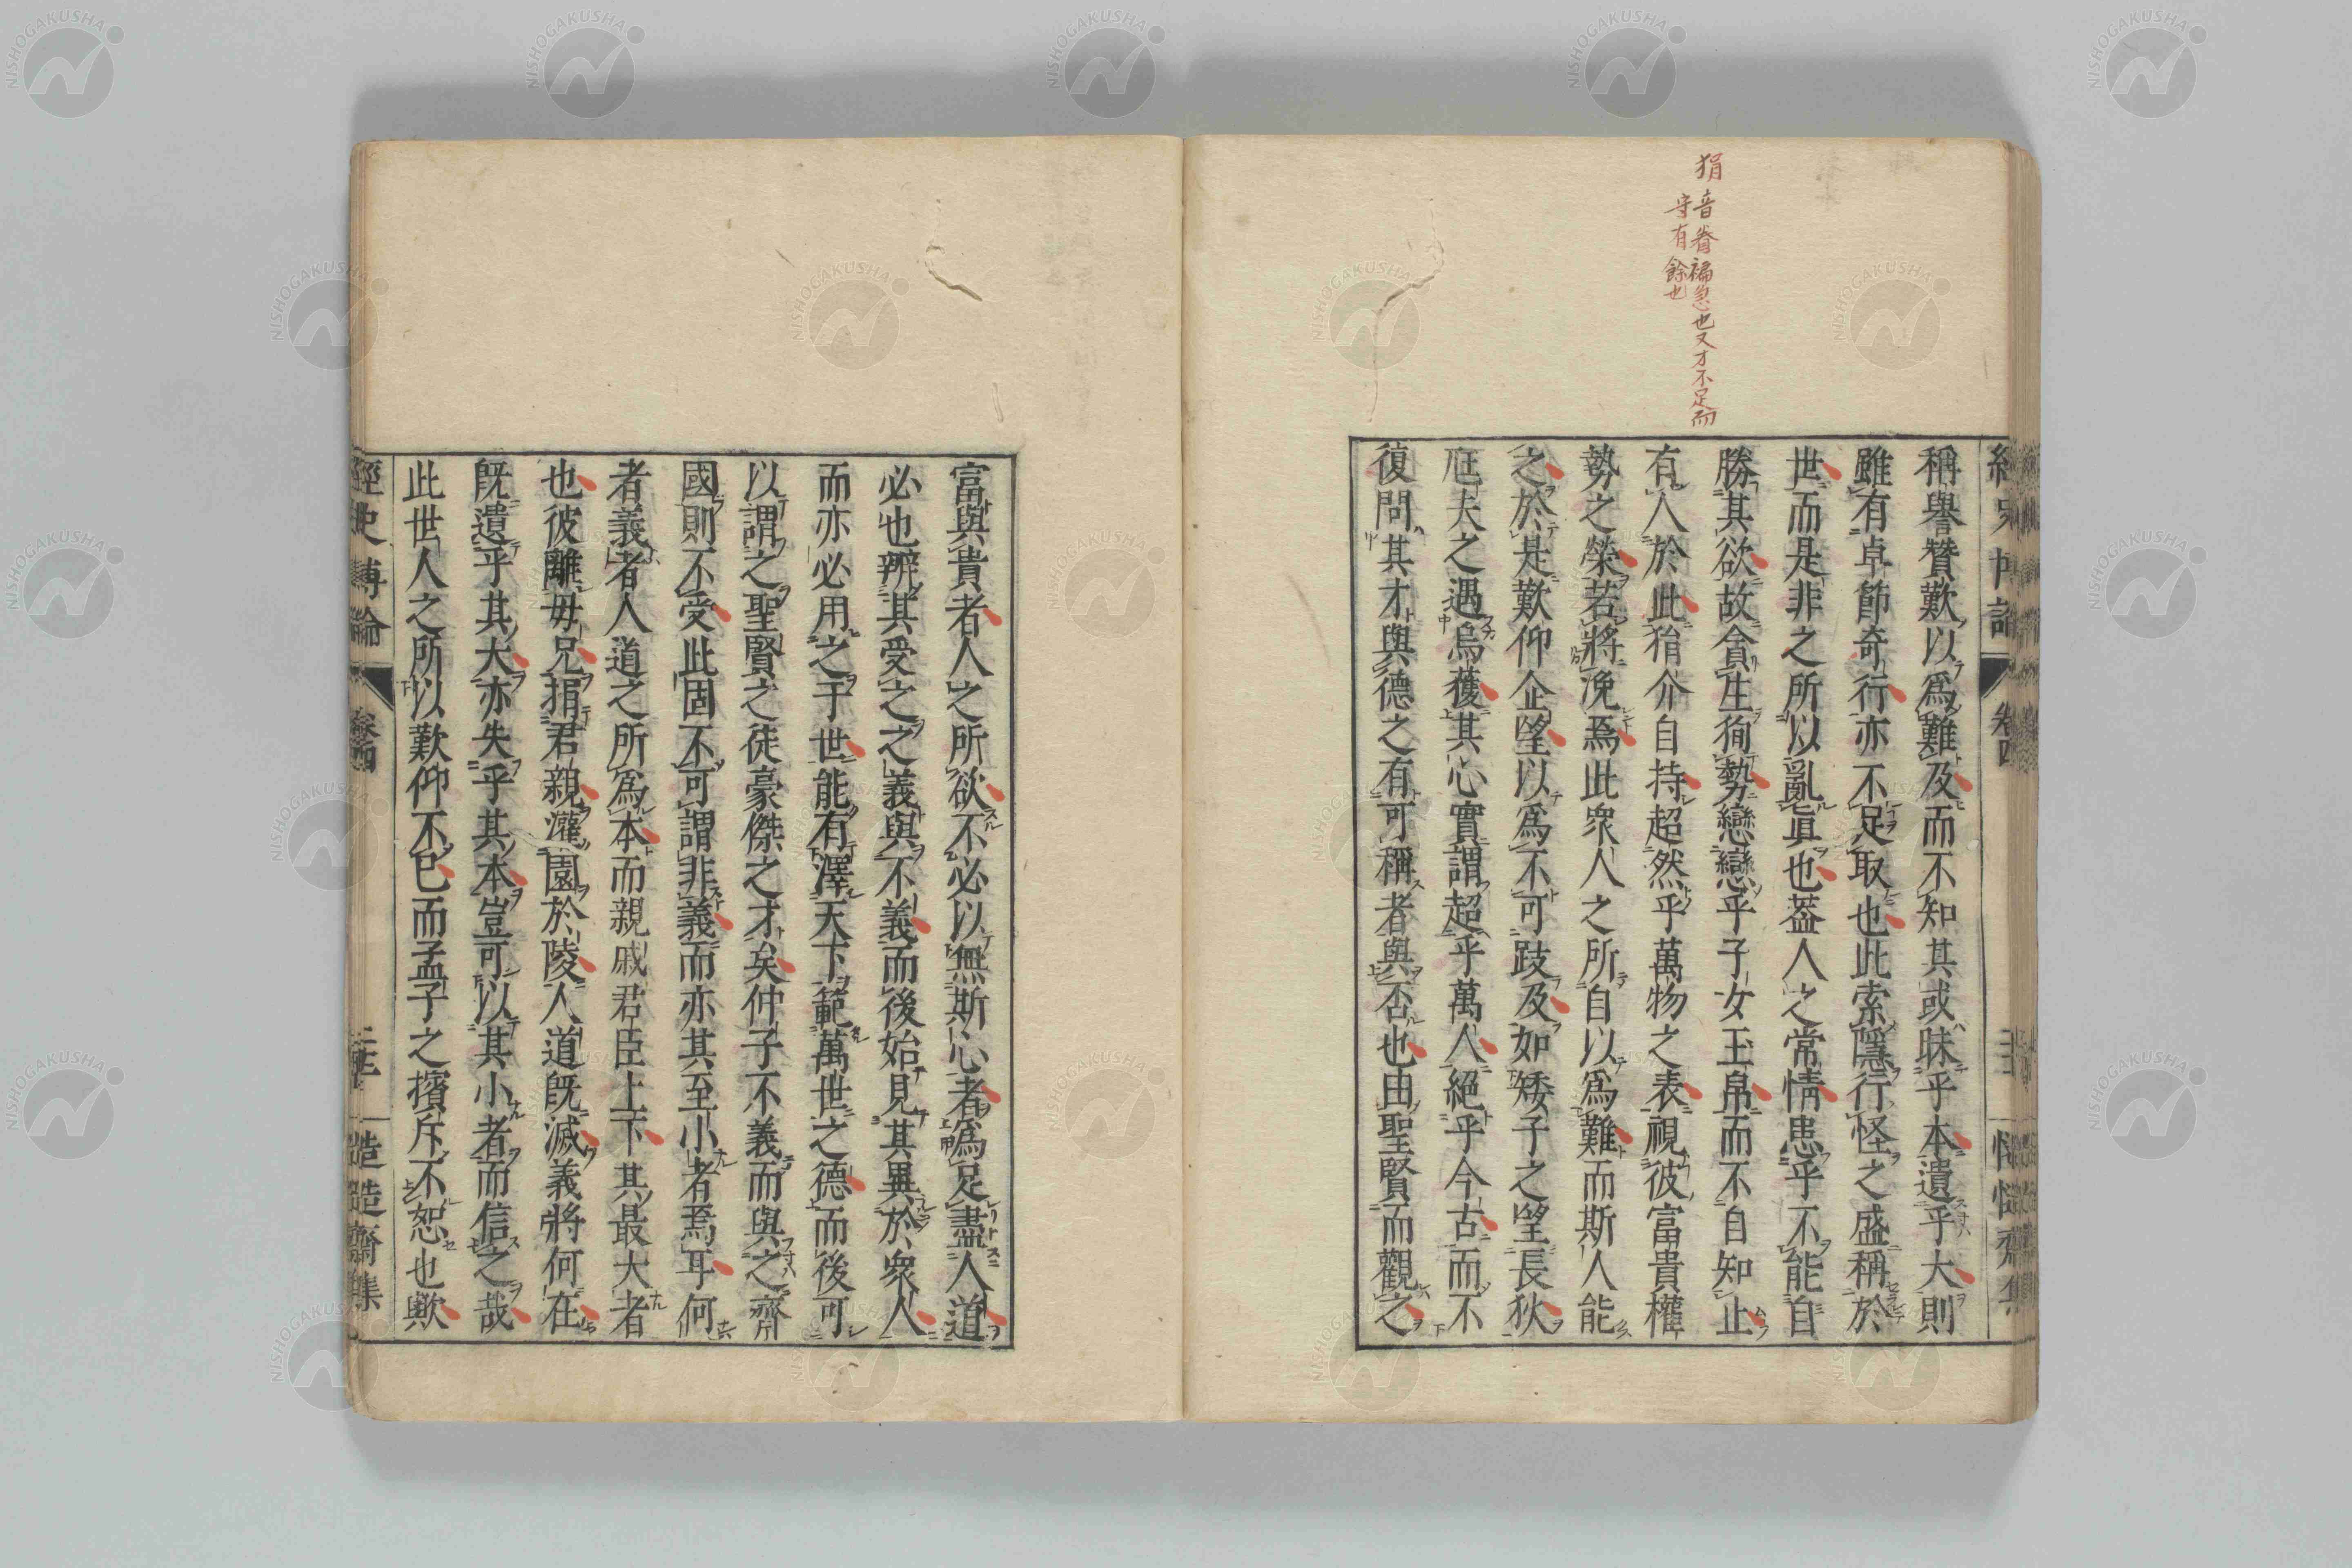 狷 音眷褊急也又才不足而
守有餘也
稱譽贊歎以爲難及而不知其或昧乎本遺乎大則
雖有卓節奇行亦不足取也此索隱行怪之盛稱於
世而是非之所以亂眞也蓋人之常情患乎不能自
勝其欲故貪生狥勢戀戀乎子女玉帛而不自知止
有人於此狷介自持超然乎萬物之表視彼富貴權
勢之榮若將浼焉此衆人之所自以爲難而斯人能
之於是歎仰企望以爲不可跂及如矮子之望長狄
尫夫之遇烏獲其心實謂超乎萬人絕乎今古而不
復問其才與德之有可稱者與否也由聖賢而觀之
富與貴者人之所欲不必以無斯心者爲足盡人道
必也辨其受之之義與不義而後始見其異於衆人
而亦必用之于世能有澤天下範萬世之德而後可
以謂之聖賢之徒豪傑之才矣仲子不義而與之齊
國則不受此固不可謂非義而亦其至小者焉耳何
者義者人道之所爲本而親戚君臣上下其最大者
也彼離母兄捐君親灌園於陵人道旣滅義將何在
旣遺乎其大亦失乎其本豈可以其小者而信之哉
此世人之所以歎仰不已而孟子之擯斥不恕也歟
經史博論
卷四
慥慥齋集